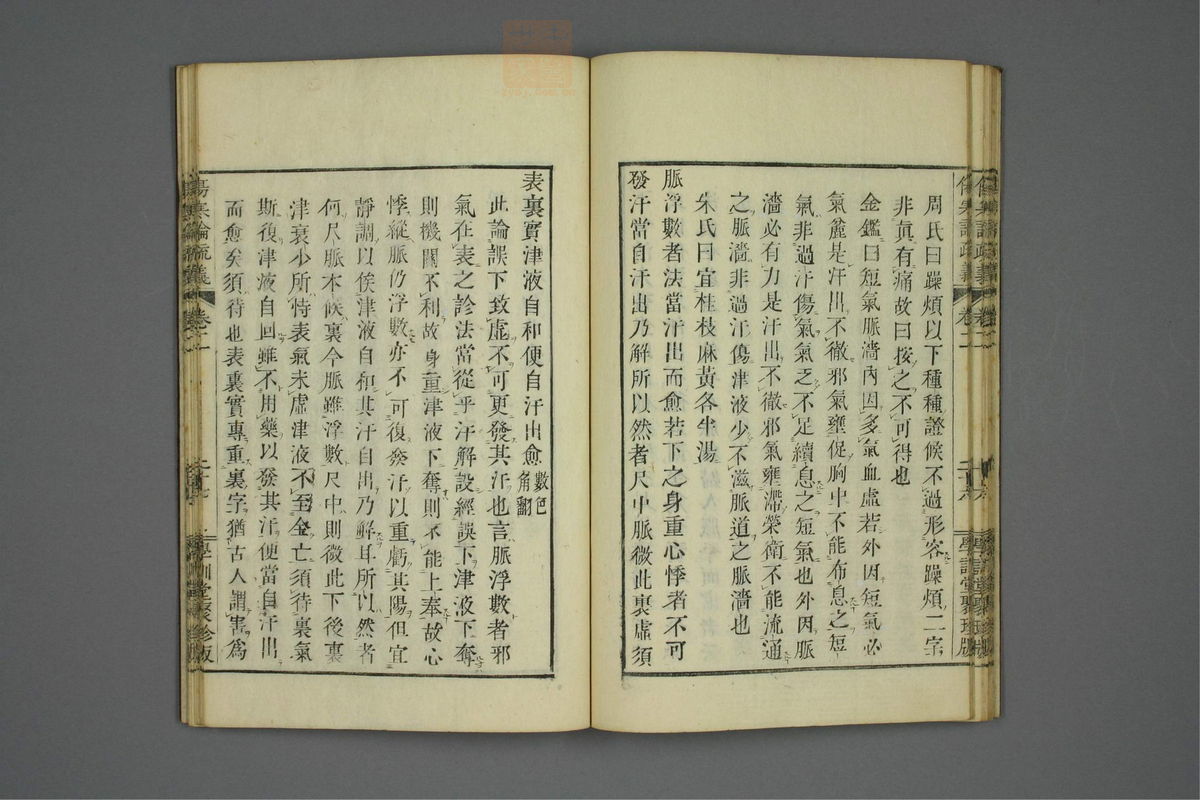 周氏曰躁煩以下種種證候不過形容躁煩二字
非眞有痛故曰按之不可得也
金鑑曰短氣脈濇內因多氣血虛若外因短氣必
氣麄是汗出不徹邪氣壅促胸中不能布息之短
氣非過汗傷氣氣乏不足續息之短氣也外因脈
濇必有力是汗出不徹邪氣壅滯榮衛不能流通
之脈濇非過汗傷津液少不滋脈道之脈濇也
朱氏曰宜桂枝麻黃各半湯
脈浮數者法當汗出而愈若下之身重心悸者不可
發汗當自汗出乃解所以然者尺中脈微此裏虛須
表裏實津液自和便自汗出愈
數色
角翻
此論誤下致虛不可更發其汗也言脈浮數者邪
氣在表之診法當從乎汗解設經誤下津液下奪
則機關不利故身重津液下奪則不能上奉故心
悸縱脈仍浮數亦不可復發汗以重虧其陽但宜
靜調以俟津液自和其汗自出乃解耳所以然者
何尺脈本候裏今脈雖浮數尺中則微此下後裏
津衰少所恃表氣未虛津液不至全亡須待裏氣
斯復津液自回雖不用藥以發其汗便當自汗出
而愈矣須待也表裏實專重裏字猶古人謂害爲
傷寒論疏義
卷二
學訓堂聚珍版